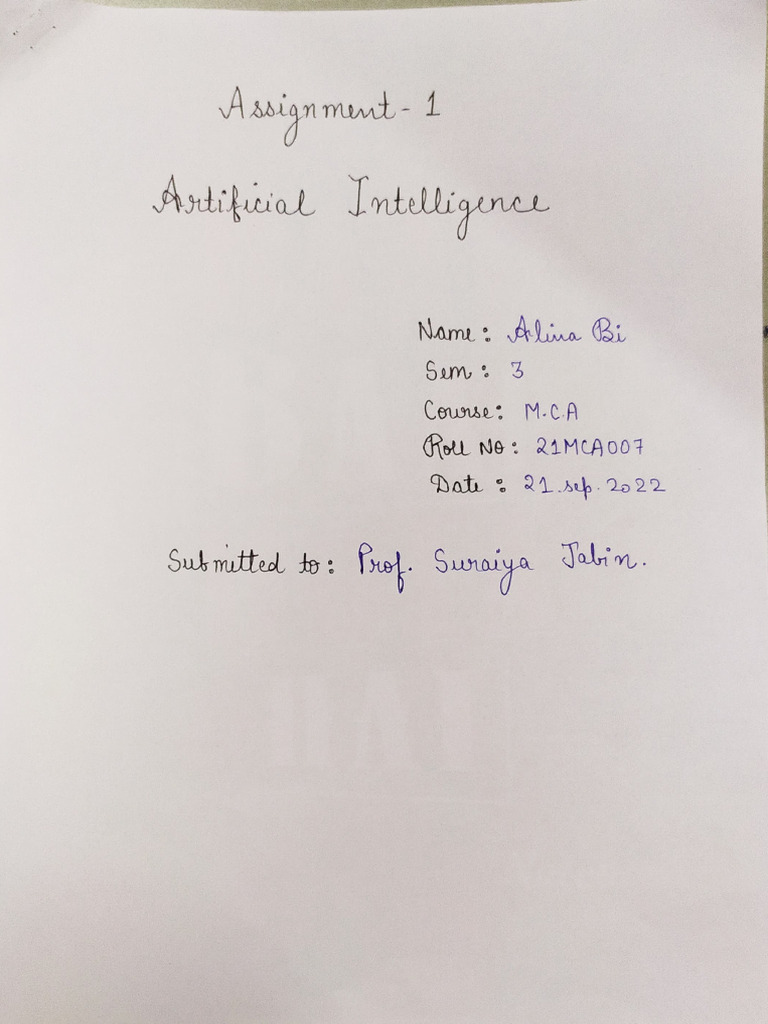 Assignment - 1
Artificial Intelligence
Name : Alina Bi
Sem : 3
Course : M.C.A
Roll No : 21MCA007
Date : 21.sep.2022
Submitted to : Prof. Suraiya Jabin.